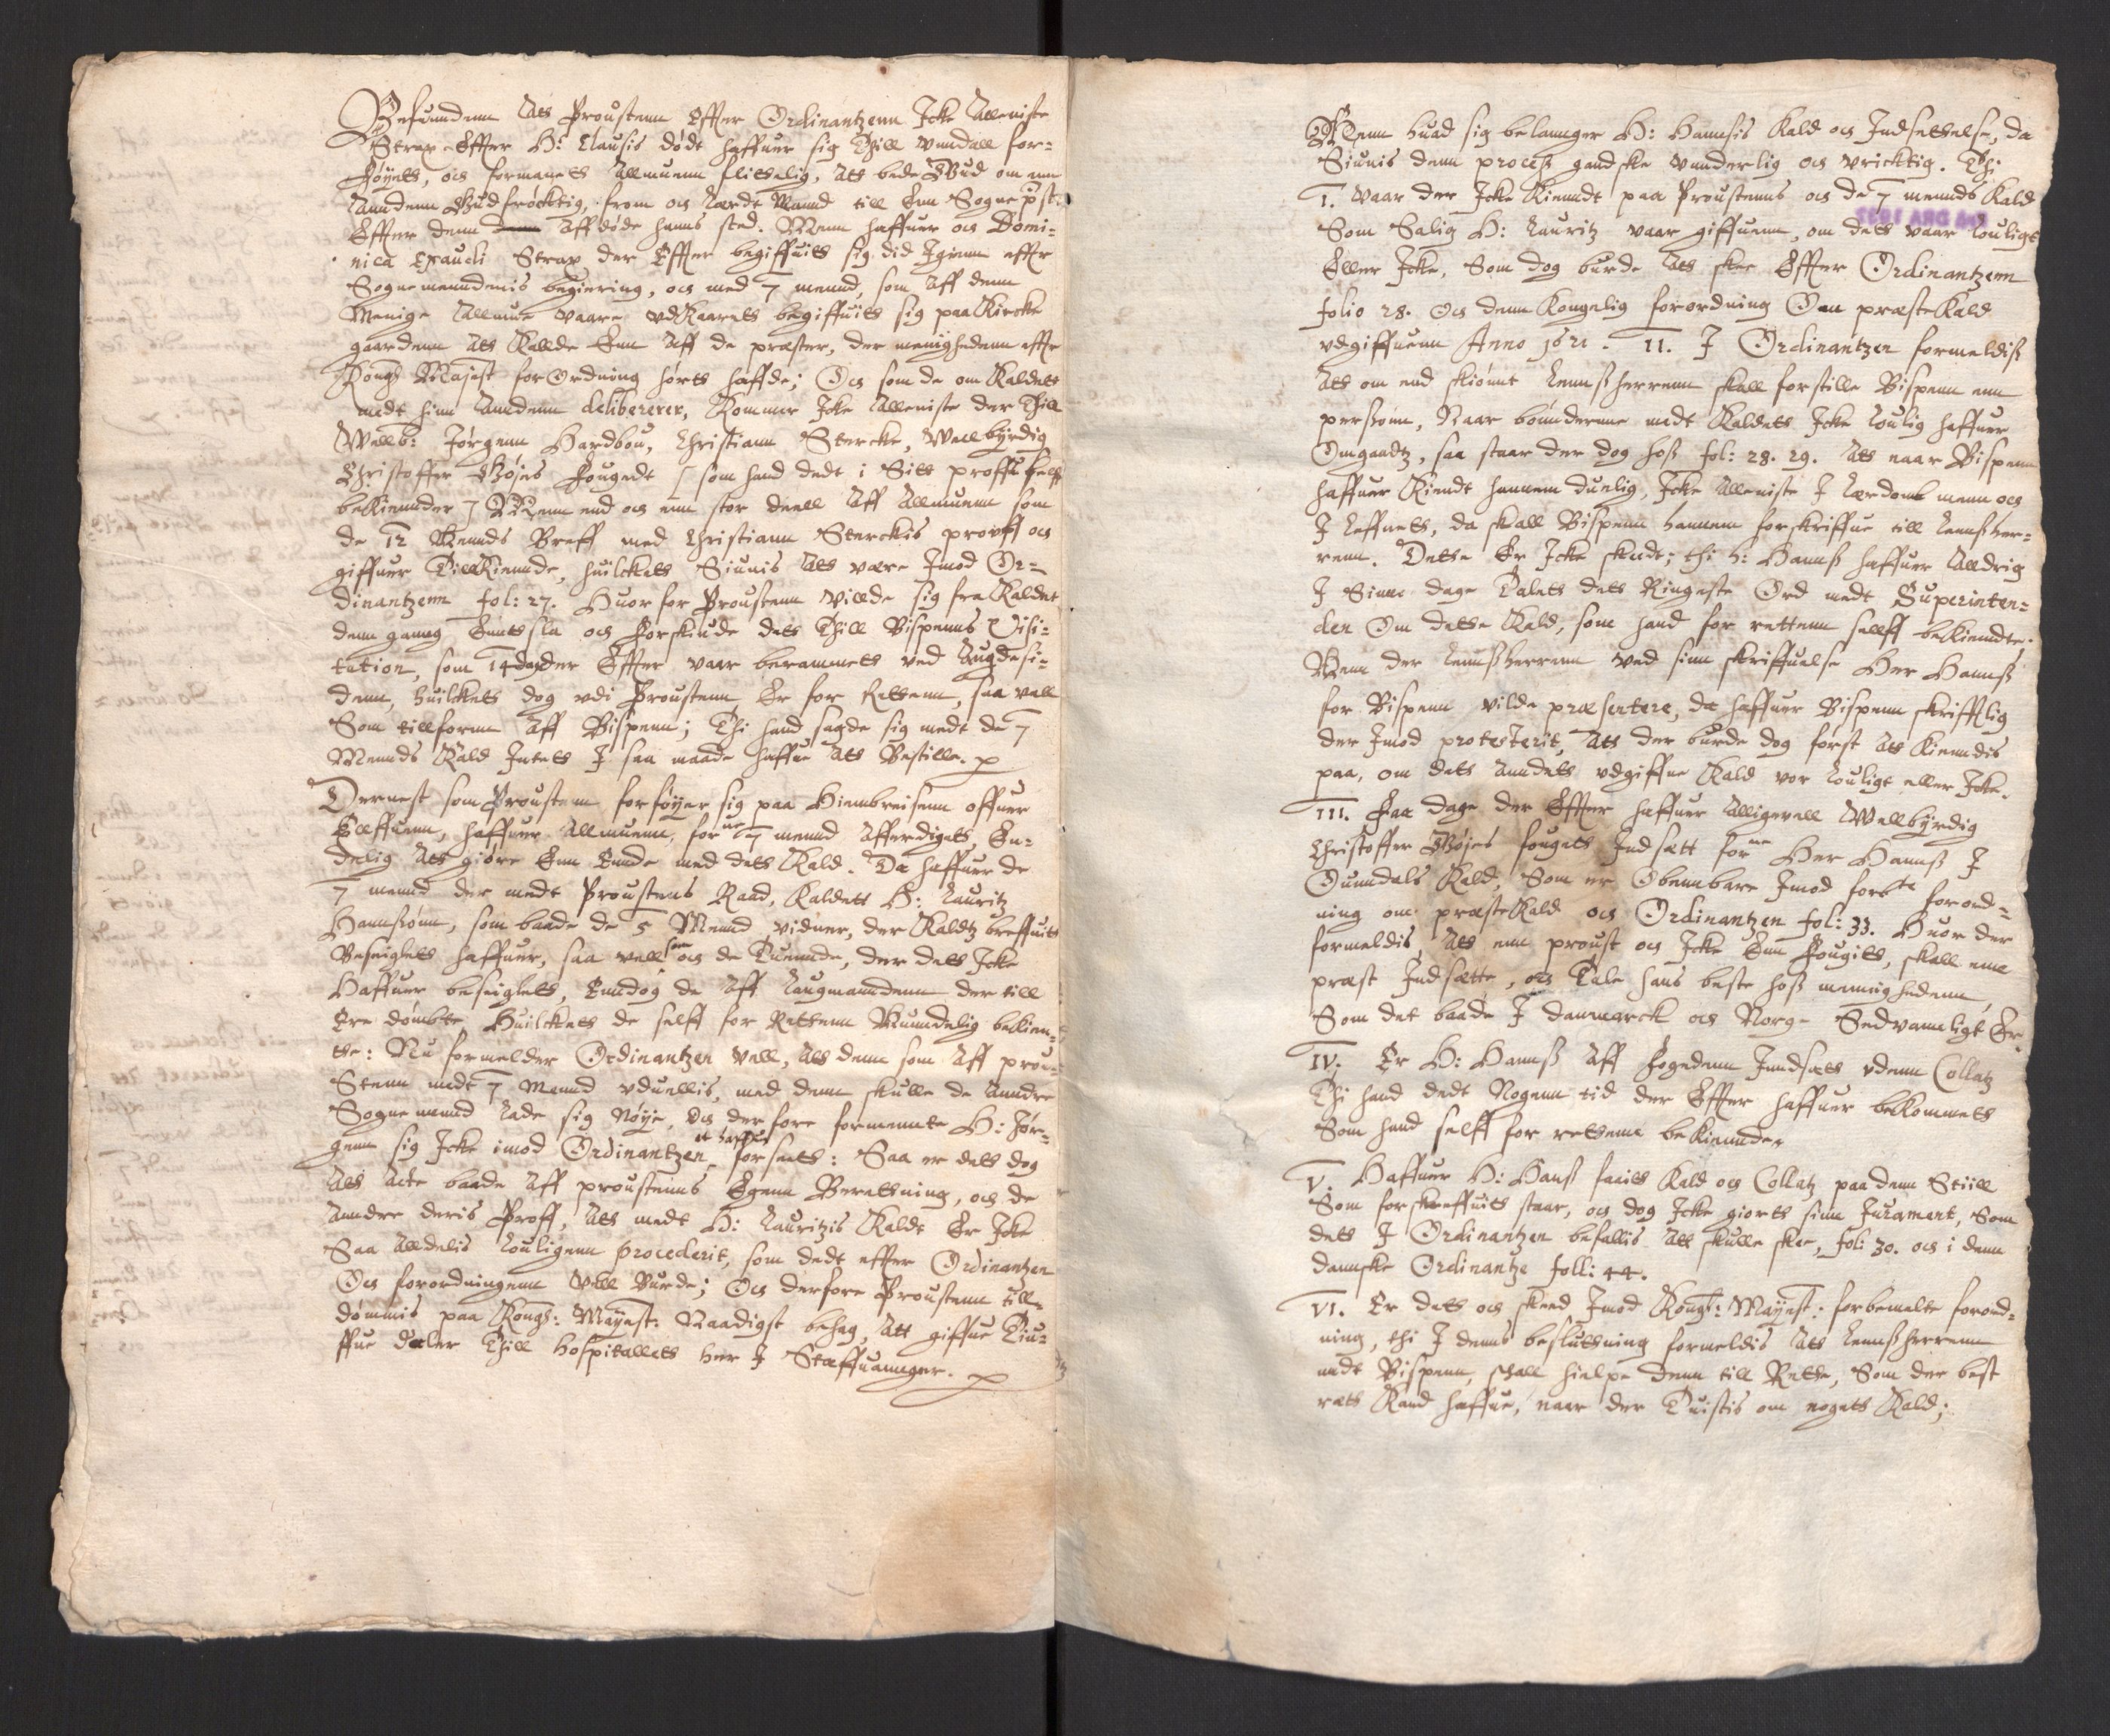 Befundenn Att Proustenn Effter Ordinantzenn Icke Alleniste
Strax Effter H: Clausis dødt haffuer sig Thill Vundall for-
føyett, och formanett Allmuenn flittelig, Att bede Gud om enn
Anndenn Gudfröcktig, from och Lærdt Mannd till Enn Sogne pst
Effter denn Affdøde hanns sted. Menn haffuer och Domi-
nica Exaudi Strax der Effter begiffuitt sig did Igienn effter
Sognemenndenis begiering, och med 7 mennd, som Aff denn
Menige Allmue vaare vdKaarett begiffuitt sig paa Kircke
gaardenn Att Kallde Enn Aff de præster, der menighedenn effter
Kongl: Mayest: forordning hørtt haffde; Och som de om Kaldett
medt hinn Anndenn delibererer, Kommer Icke Alleniste der Thill
Wellb: Jørgenn Hardbou, Christiann Stercke, Wellbyrdig
Christoffer Gøjes Fougedt [som hand dedt i Sitt proff self
bekiennder] Menn end och enn stor deell Aff Allmuenn som
de 12 Mennds Breff med Christiann Sterckis proff och
giffuer Tillkiennde, huilckett Siunis Att være Imod Or-
dinantzenn fol: 27. Huor for Proustenn villde sig fra Kaldet
denn gaung Enntsla och forskiude dett Thill Bispenns Visi-
tation, som 14 dag der Effter vaar berammett ved Lugdesi-
denn, huilckett dog vdi Proustenn Er for Rettenn, saa vell
Som tillforn Aff Bispenn; Thi hand sagde sig medt de 7
Mennds Kald Intett I saa maade haffue Att Bestille.
Dernest som Proustenn forføyer sig paa Hiembreisenn offuer
Elffuenn, haffuer Allmuenn, forne 7 mennd Afferdigett, En-
delig Att giøre Enn Ennde med dett Kald. Da haffuer de
7 mennd der medt Proustens Raad, Kaldett H: Lauritz
Hannssønn, som baade de 5 Mennd vidner, der Kaldtz breffuitt
Beseiglett haffuer, saa vell som och de Tuennde, der dett Icke
Haffuer beseiglett, Enndog de Aff Laugmanndenn der till
Ere dømbte Huilckett de selff for Rettenn Mundelig bekien-
te: Nu formelder Ordinantzen vell, Att denn som Aff prou-
stenn medt 7 Mannd vduellis, med denn skulle de Anndre
Sognemennd Lade sig Nøye, Och der fore formennte H: Jør-
genn sig Icke imod Ordinantzen at haffue forseet: Saa er dett dog
Att Acte baade Aff proustenns Egenn Berettning, och de
Anndre deris Proff, Att medt H: Lauritzis Kaldt Er Icke
Saa Alldelis Louligenn procederit, som dedt effter Ordinantzen
Och forordningenn vell Burde; Och derfore Proustenn till-
dømmis paa Kongl: Mayest: Naadigst behag, Att giffue Tiu-
ffue daler Thill Hospitallett her I Staffuannger.
Menn huad sig belannger H: Hannsis Kald och Indsettelse, da
Siunis denn process gandske vnnderlig och vricktig. Thi
I. Vaar der Icke Kienndt paa Proustenns och de 7 mennds Kald
Som Salig H: Lauritz vaar giffuenn, om dett vaar Louligt
Eller Icke, Som dog burde Att skee Effter Ordinantzenn
folio 28. Och denn Kongelig forordning Om præsteKald
vdgiffuenn Anno 1621. II. I Ordinantzen formeldiss
Att om end skiønnt Lennssherrenn skall forstille Bispenn enn
perssonn, Naar bønnderne medt Kaldett Icke Loulig haffuer
Omgaadtz, saa staar der dog hoss fol: 28. 29. Att naar Bispenn
haffuer Kiendt hannem duelig, Icke Alleniste I Lærdomb menn och
I Leffnett, da skall Bispenn hannem forskriffue till Lennssher-
renn. Dette Er Icke skeedt; thi H: Hannss haffuer Alldrig
I Sinne dage Talet det Ringeste Ord medt Superinten-
den Om dette Kald, som hand for rettenn sellff bekiendte.
Menn der Lennssherrenn ved sinn skriffuelse Her Hannss
for Bispenn vilde præsentere, da haffuer Bispenn skrifftlig
der Imod protesterit, Att der burde dog først Att Kienndis
paa, om dett Anndett vdgiffne Kald vor Louligt eller Icke.
III. Faa dage der Effter haffuer Alligevell Wellbyrdig
Christoffer Gøjes fougett Indsatt forne Her Hannss I
Vunndals Kald, Som er Obennbare Imod forbte forord-
ning om præsteKald och Ordinantzen fol: 33. Huor der
formeldis Att enn proust och Icke Enn Fougitt, skall enn
præst Indsætte, och Tale hans beste hoss mennighedenn,
Som det baade I Danmarck och Norge Sedvannligt Er.
IV. Er H: Hannss Aff Fogedenn Inndsatt vdenn Collatz
Thi hand dedt Nogenn tid der Effter haffuer bekommett
Som hand selff for rettenn bekiennder
V. Haffuer H: Hanss faaitt Kald och Collatz paa denn Stiill
Som forskreffuitt staar, och dog Icke giortt sinn Jurament, Som
dett I Ordinantzen befallis Att skulle skee, fol: 30. och i denn
dannske Ordinantze foll: 44.
VI. Er dett och skeed Imod Kongl: Mayest: forbemelte forord-
ning, thi I denns besluttning formeldis Att Lennssherrenn
medt Bispenn, skall hielpe denn till Rette, Som der best
rett Kand haffue, naar der Tuistis om nogett Kald;